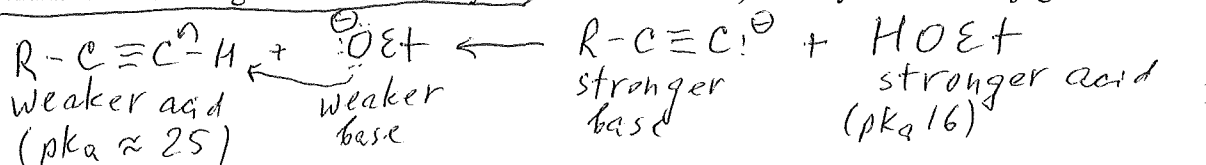 R-C≡C-H + ⊖:ÖEt ← R-C≡C:⊖ + HOEt
weaker acid weaker base stronger base stronger acid
(pka ≈ 25) (pka 16)